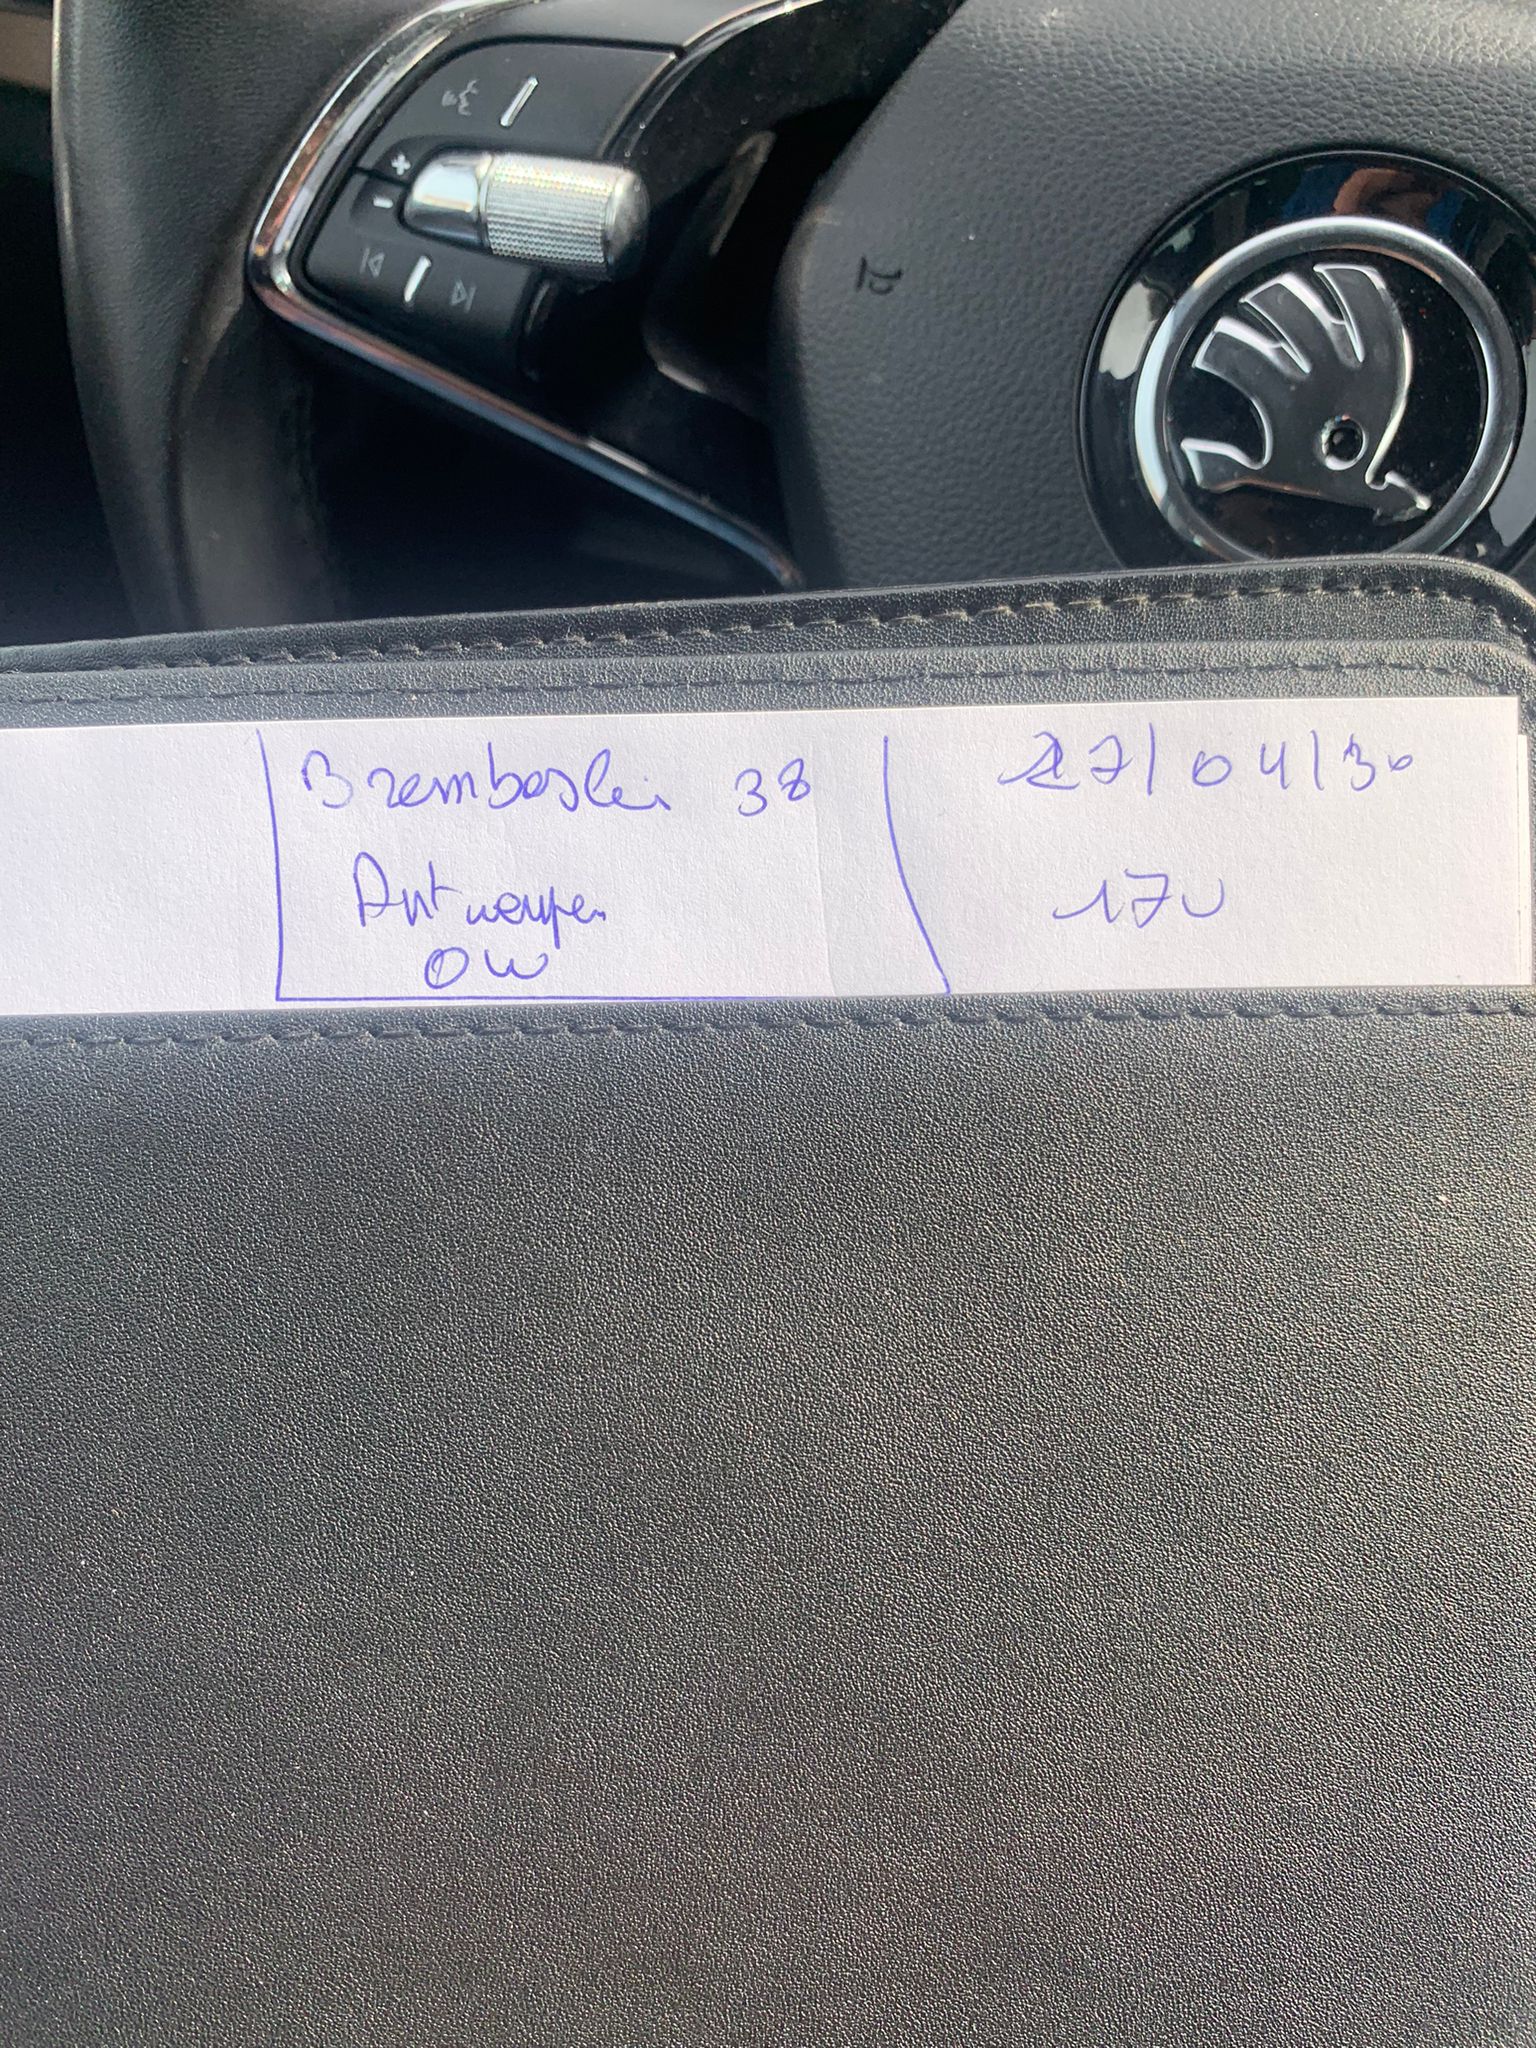 Bremboslei 38
Antwerpen
OW
27/04/30
170